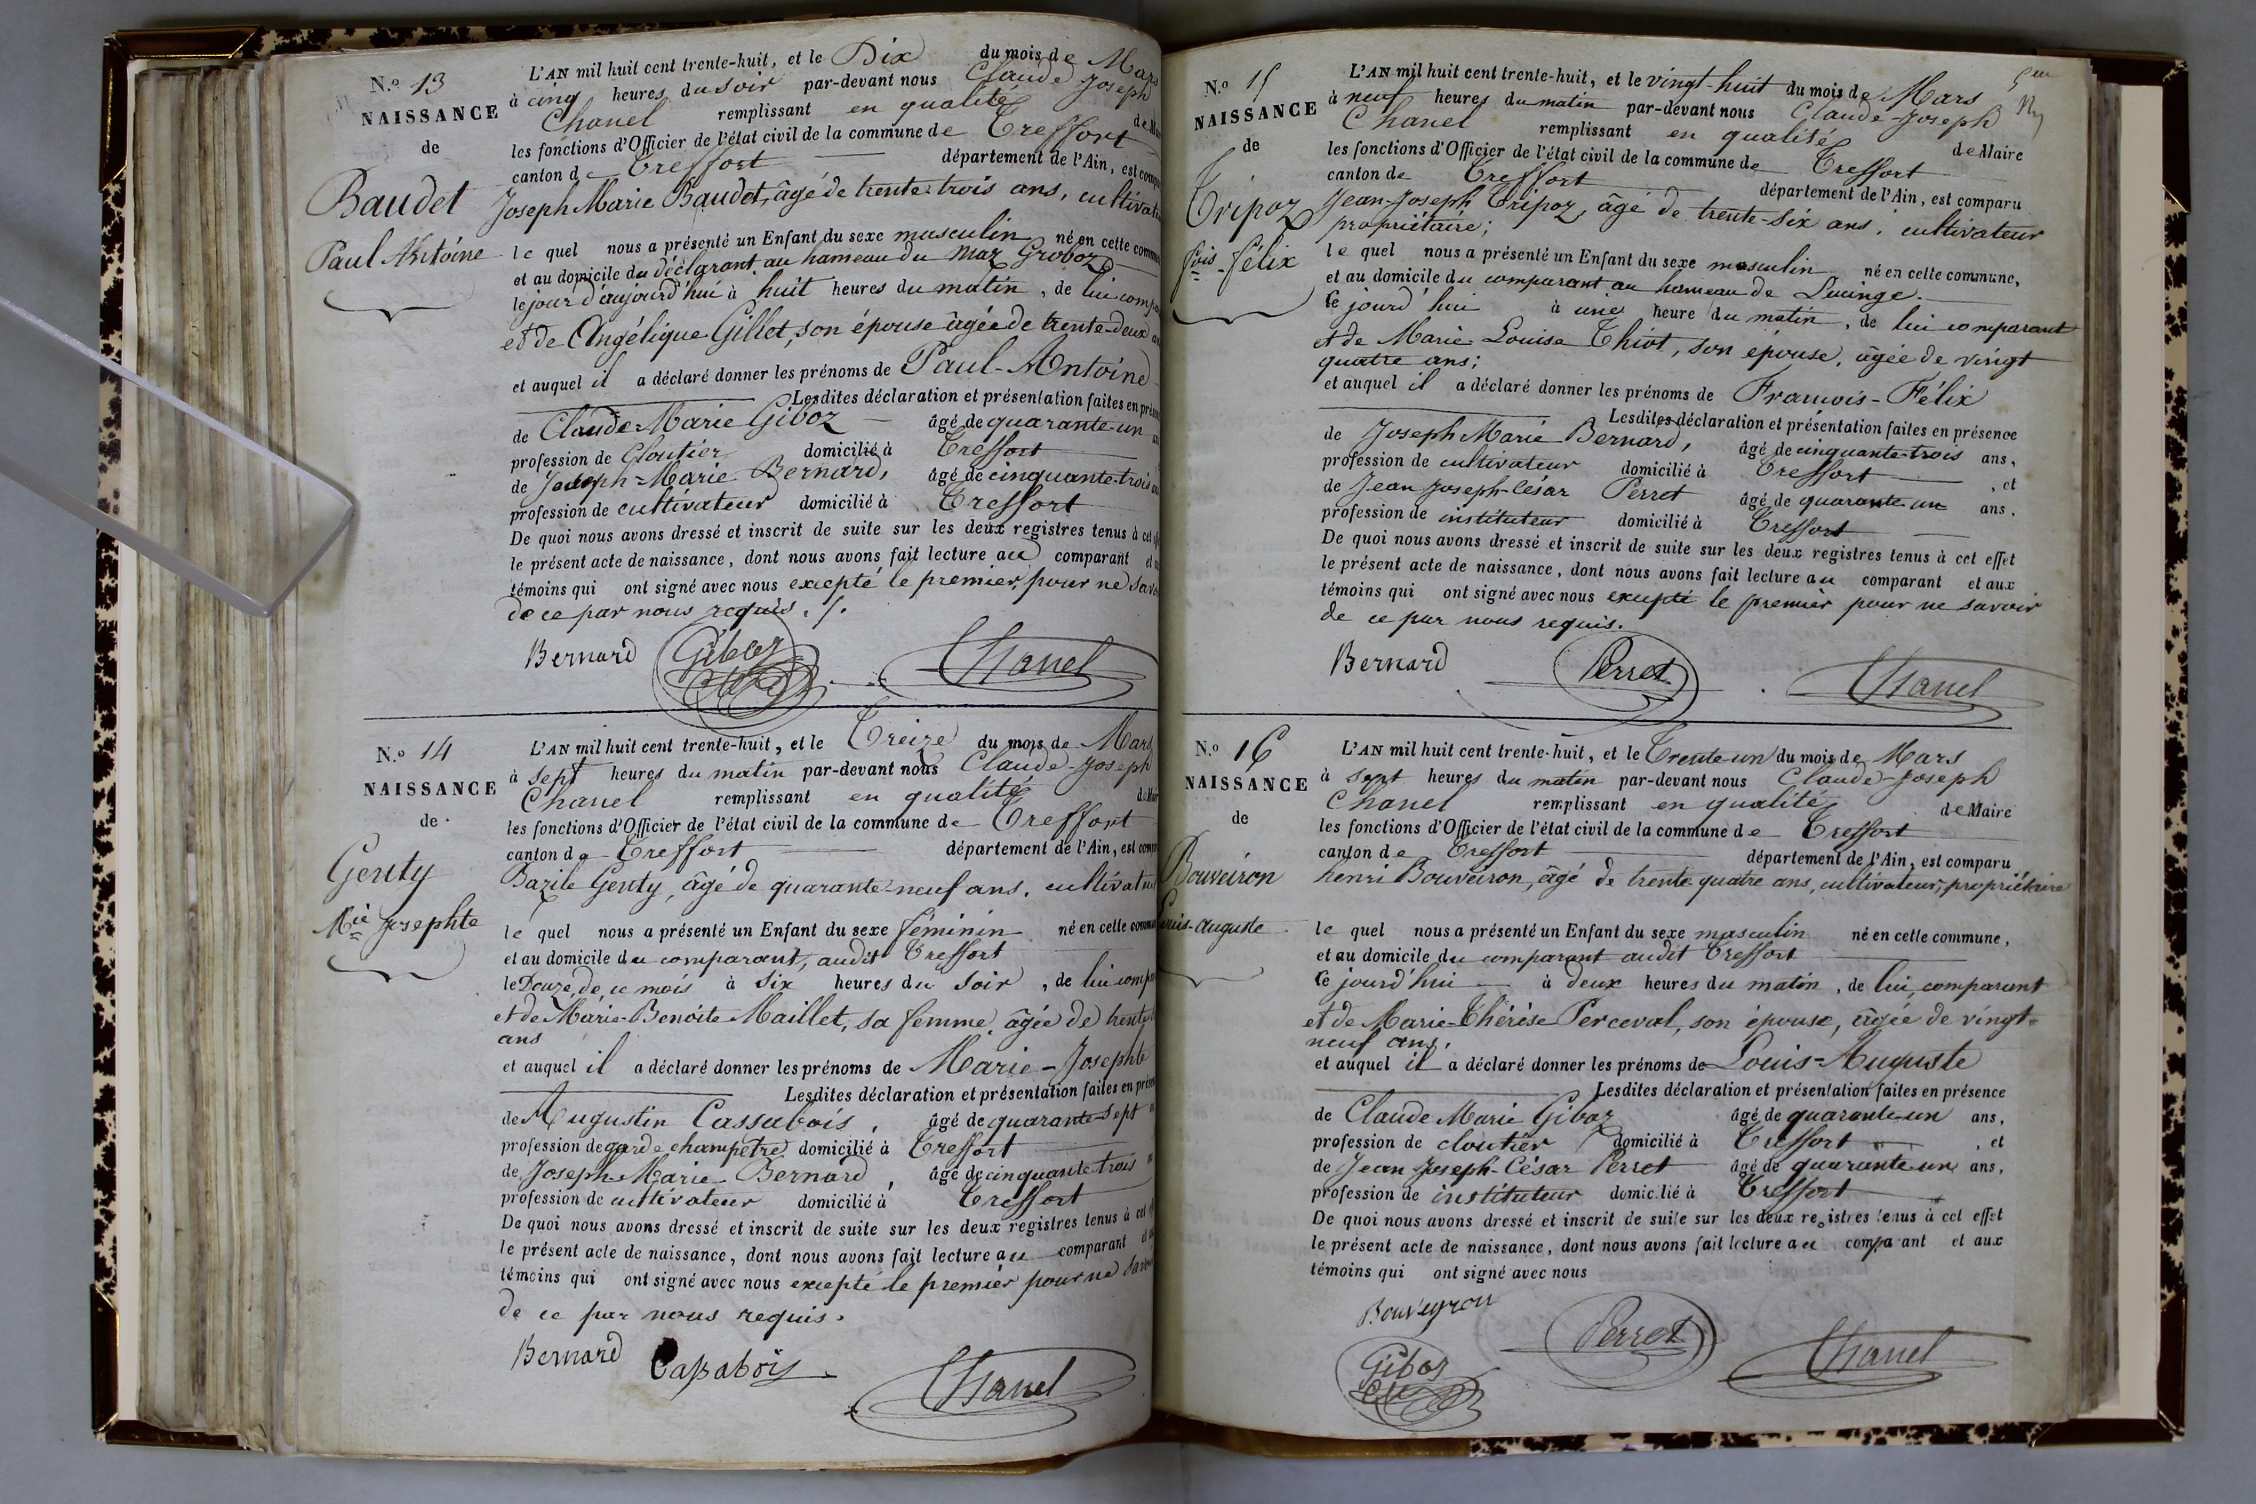 N.o 13
NAISSANCE
de
Baudet
Paul Antoine
L'AN mil huit cent trente-huit, et le Dix du mois de Mars
à cinq heures du soir par-devant nous Claude Joseph
Chanel remplissant en qualité de Mai
les fonctions d'Officier de l'état civil de la commune de Treffort
canton de Treffort département de l'Ain, est compa
Joseph Marie Baudet, âgé de trente-trois ans, cultivate
le quel nous a présenté un Enfant du sexe masculin né en cette commu
et au domicile du déclarant au hameau du Maz Groboz
le jour d'aujourd'hui à huit heures du matin, de lui compa
et de Angélique Gillet, son épouse âgée de trente-deux an
et auquel il a déclaré donner les prénoms de Paul-Antoine
Lesdites déclaration et présentation faites en prése
de Claude Marie Giboz âgé de quarante-un an
profession de Cloutier domicilié à Treffort
de Joseph-Marie Bernard, âgé de cinquante-trois an
profession de cultivateur domicilié à Treffort
De quoi nous avons dressé et inscrit de suite sur les deux registres tenus à cet eff
le présent acte de naissance, dont nous avons fait lecture au comparant et au
témoins qui ont signé avec nous excepté le premier, pour ne savo
de ce par nous requis. /.
Bernard Giboz Chanel
N.o 14
NAISSANCE
de
Genty
Mie Josephte
L'AN mil huit cent trente-huit, et le Treize du mois de Mars
à sept heures du matin par-devant nous Claude-Joseph
Chanel remplissant en qualité de Mair
les fonctions d'Officier de l'état civil de la commune de Treffort
canton de Treffort département de l'Ain, est compa
Bazile Genty, âgé de quarante-neuf ans, cultivateur
le quel nous a présenté un Enfant du sexe féminin né en cette commun
et au domicile du comparant, audit Treffort
le Douze de ce mois à six heures du soir, de lui compa
et de Marie-Benoite Maillet, sa femme, âgée de trente
ans
et auquel il a déclaré donner les prénoms de Marie-Josephte
Lesdites déclaration et présentation faites en présen
de Augustin Cassabois, âgé de quarante-sept
profession de garde champêtre domicilié à Treffort
de Joseph-Marie Bernard, âgé de cinquante trois
profession de cultivateur domicilié à Treffort
De quoi nous avons dressé et inscrit de suite sur les deux registres tenus à cet
le présent acte de naissance, dont nous avons fait lecture au comparant et
témoins qui ont signé avec nous excepté le premier pour ne savoi
de ce par nous requis.
Bernard Cassabois Chanel
N.o 15
NAISSANCE
de
Tripoz
fois-félix
L'AN mil huit cent trente-huit, et le vingt-huit du mois de Mars
à neuf heures du matin par-devant nous Claude-Joseph
Chanel remplissant en qualité de Maire
les fonctions d'Officier de l'état civil de la commune de Treffort
canton de Treffort département de l'Ain, est comparu
Jean-Joseph Tripoz, âgé de trente-six ans, cultivateur
propriétaire;
le quel nous a présenté un Enfant du sexe masculin né en cette commune,
et au domicile du comparant au hameau de Lucinge.
Ce jourd'hui à une heure du matin, de lui comparant
et de Marie Louise Thiot, son épouse, âgée de vingt
quatre ans;
et auquel il a déclaré donner les prénoms de François-Félix
Lesdites déclaration et présentation faites en présence
de Joseph Marie Bernard, âgé de cinquante-trois ans,
profession de cultivateur domicilié à Treffort, et
de Jean Joseph-César Perret âgé de quarante un ans.
profession de instituteur domicilié à Treffort
De quoi nous avons dressé et inscrit de suite sur les deux registres tenus à cet effet
le présent acte de naissance, dont nous avons fait lecture au comparant et aux
témoins qui ont signé avec nous excepté le premier pour ne savoir
de ce par nous requis.
Bernard Perret Chanel
N.o 16
NAISSANCE
de
Bouveiron
Louis-auguste
L'AN mil huit cent trente-huit, et le Trente-un du mois de Mars
à sept heures du matin par-devant nous Claude-Joseph
Chanel remplissant en qualité de Maire
les fonctions d'Officier de l'état civil de la commune de Treffort
canton de Treffort département de l'Ain, est comparu
henri Bouveiron, âgé de trente quatre ans, cultivateur, propriétaire
le quel nous a présenté un Enfant du sexe masculin né en cette commune,
et au domicile du comparant audit Treffort
Ce jourd'hui à deux heures du matin, de lui comparant
et de Marie-Thérèse Perceval, son épouse, âgée de vingt-
neuf ans,
et auquel il a déclaré donner les prénoms de Louis-Auguste
Lesdites déclaration et présentation faites en présence
de Claude Marie Giboz âgé de quarante-un ans,
profession de cloutier domicilié à Treffort, et
de Jean Joseph-César Perret âgé de quarante-un ans,
profession de instituteur domicilié à Treffort
De quoi nous avons dressé et inscrit de suite sur les deux registres tenus à cet effet
le présent acte de naissance, dont nous avons fait lecture au comparant et aux
témoins qui ont signé avec nous
Bouveyron
Giboz Perret Chanel